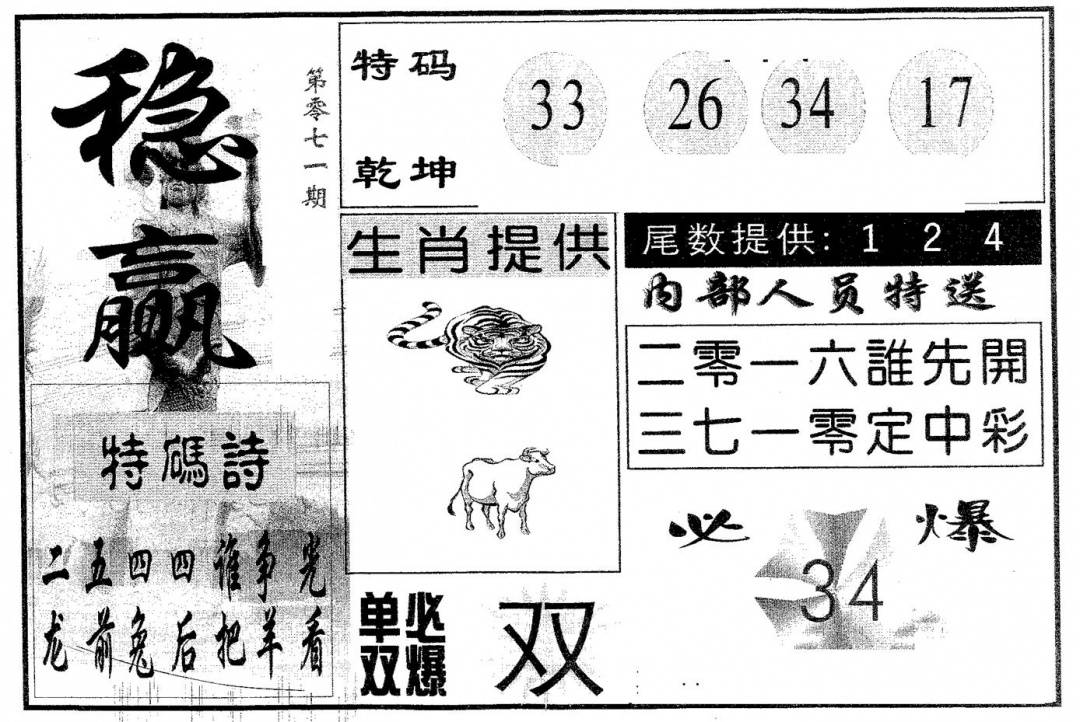 稳赢
第零七一期
特码
乾坤
33 26 34 17
生肖提供
尾数提供: 1 2 4
内部人员特送
二零一六誰先開
三七一零定中彩
特碼詩
二五四四谁争光
龙前兔后把羊看
必爆
34
单双
必爆
双